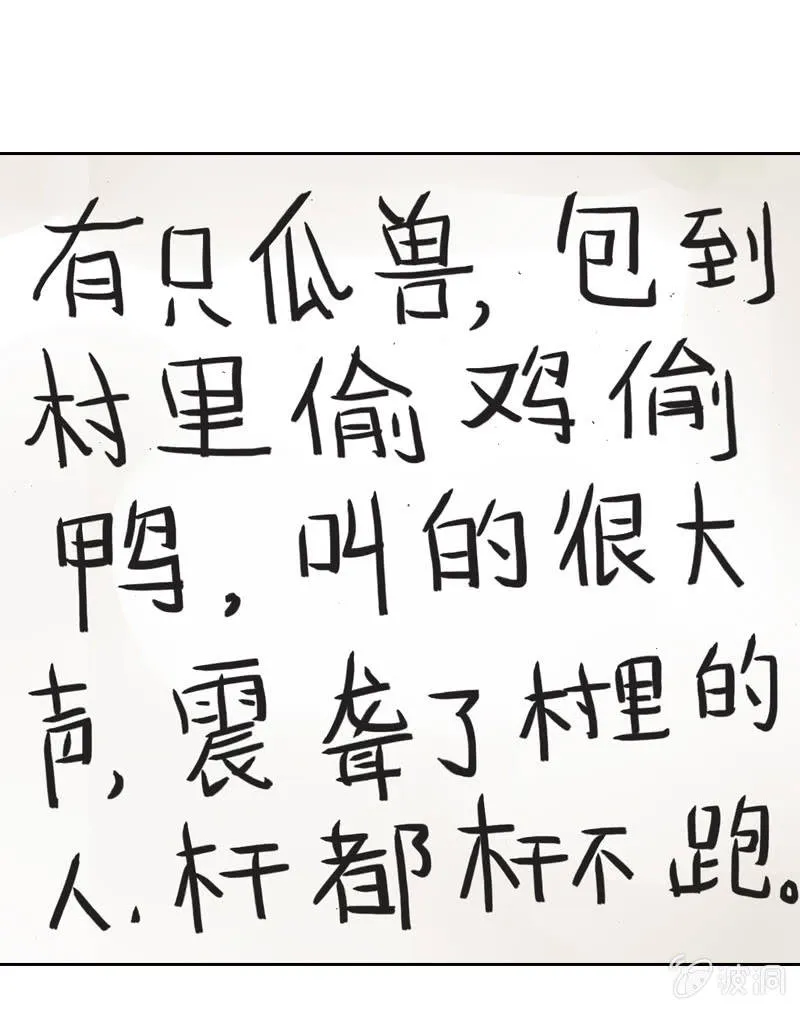 有只瓜兽,包到
村里偷鸡偷
鸭,叫的很大
声,震聋了村里的
人.杆都杆不跑。
波洞